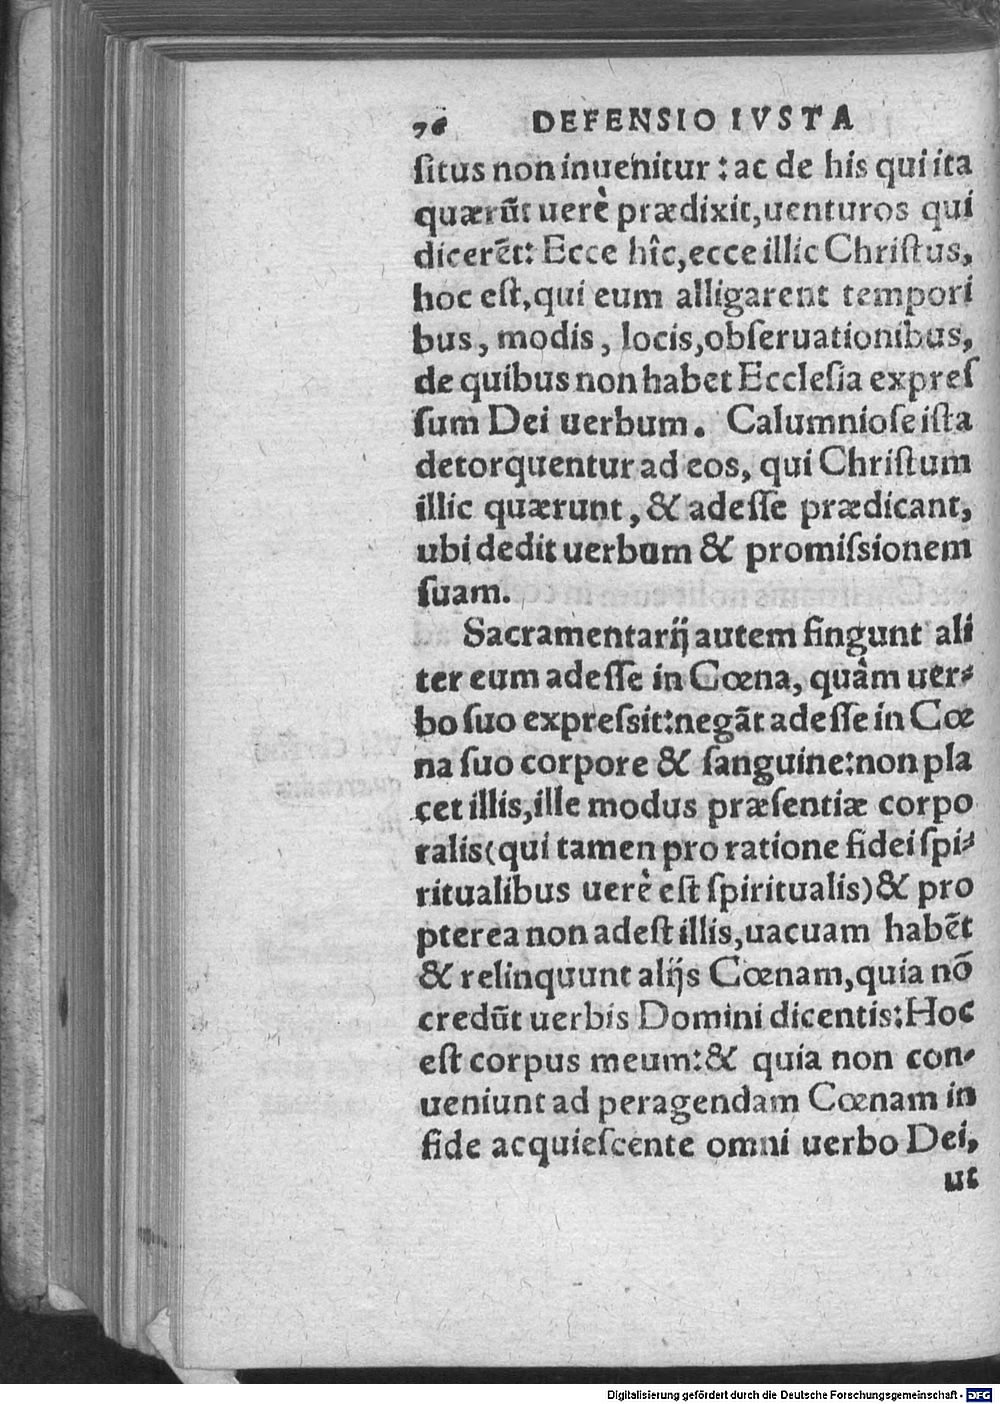 76 DEFENSIO IVSTA
ſitus non inuenitur: ac de his qui ita
quærūt uerè prædixit, uenturos qui
dicerēt: Ecce hîc, ecce illic Chriſtus,
hoc eſt, qui eum alligarent tempori
bus, modis, locis, obſeruationibus,
de quibus non habet Eccleſia expreſ
ſum Dei uerbum. Calumnioſe iſta
detorquentur ad eos, qui Chriſtum
illic quærunt, & adeſſe prædicant,
ubi dedit uerbum & promiſsionem
ſuam.
Sacramentarij autem fingunt ali
ter eum adeſſe in Cœna, quàm uer-
bo ſuo expreſsit: negāt adeſſe in Cœ
na ſuo corpore & ſanguine: non pla
cet illis, ille modus præſentiæ corpo
ralis (qui tamen pro ratione fidei ſpi-
ritualibus uerè eſt ſpiritualis) & pro
pterea non adeſt illis, uacuam habēt
& relinquunt alijs Cœnam, quia nō
credūt uerbis Domini dicentis: Hoc
eſt corpus meum: & quia non con-
ueniunt ad peragendam Cœnam in
fide acquieſcente omni uerbo Dei,
ut
Digitalisierung gefördert durch die Deutsche Forschungsgemeinschaft - DFG